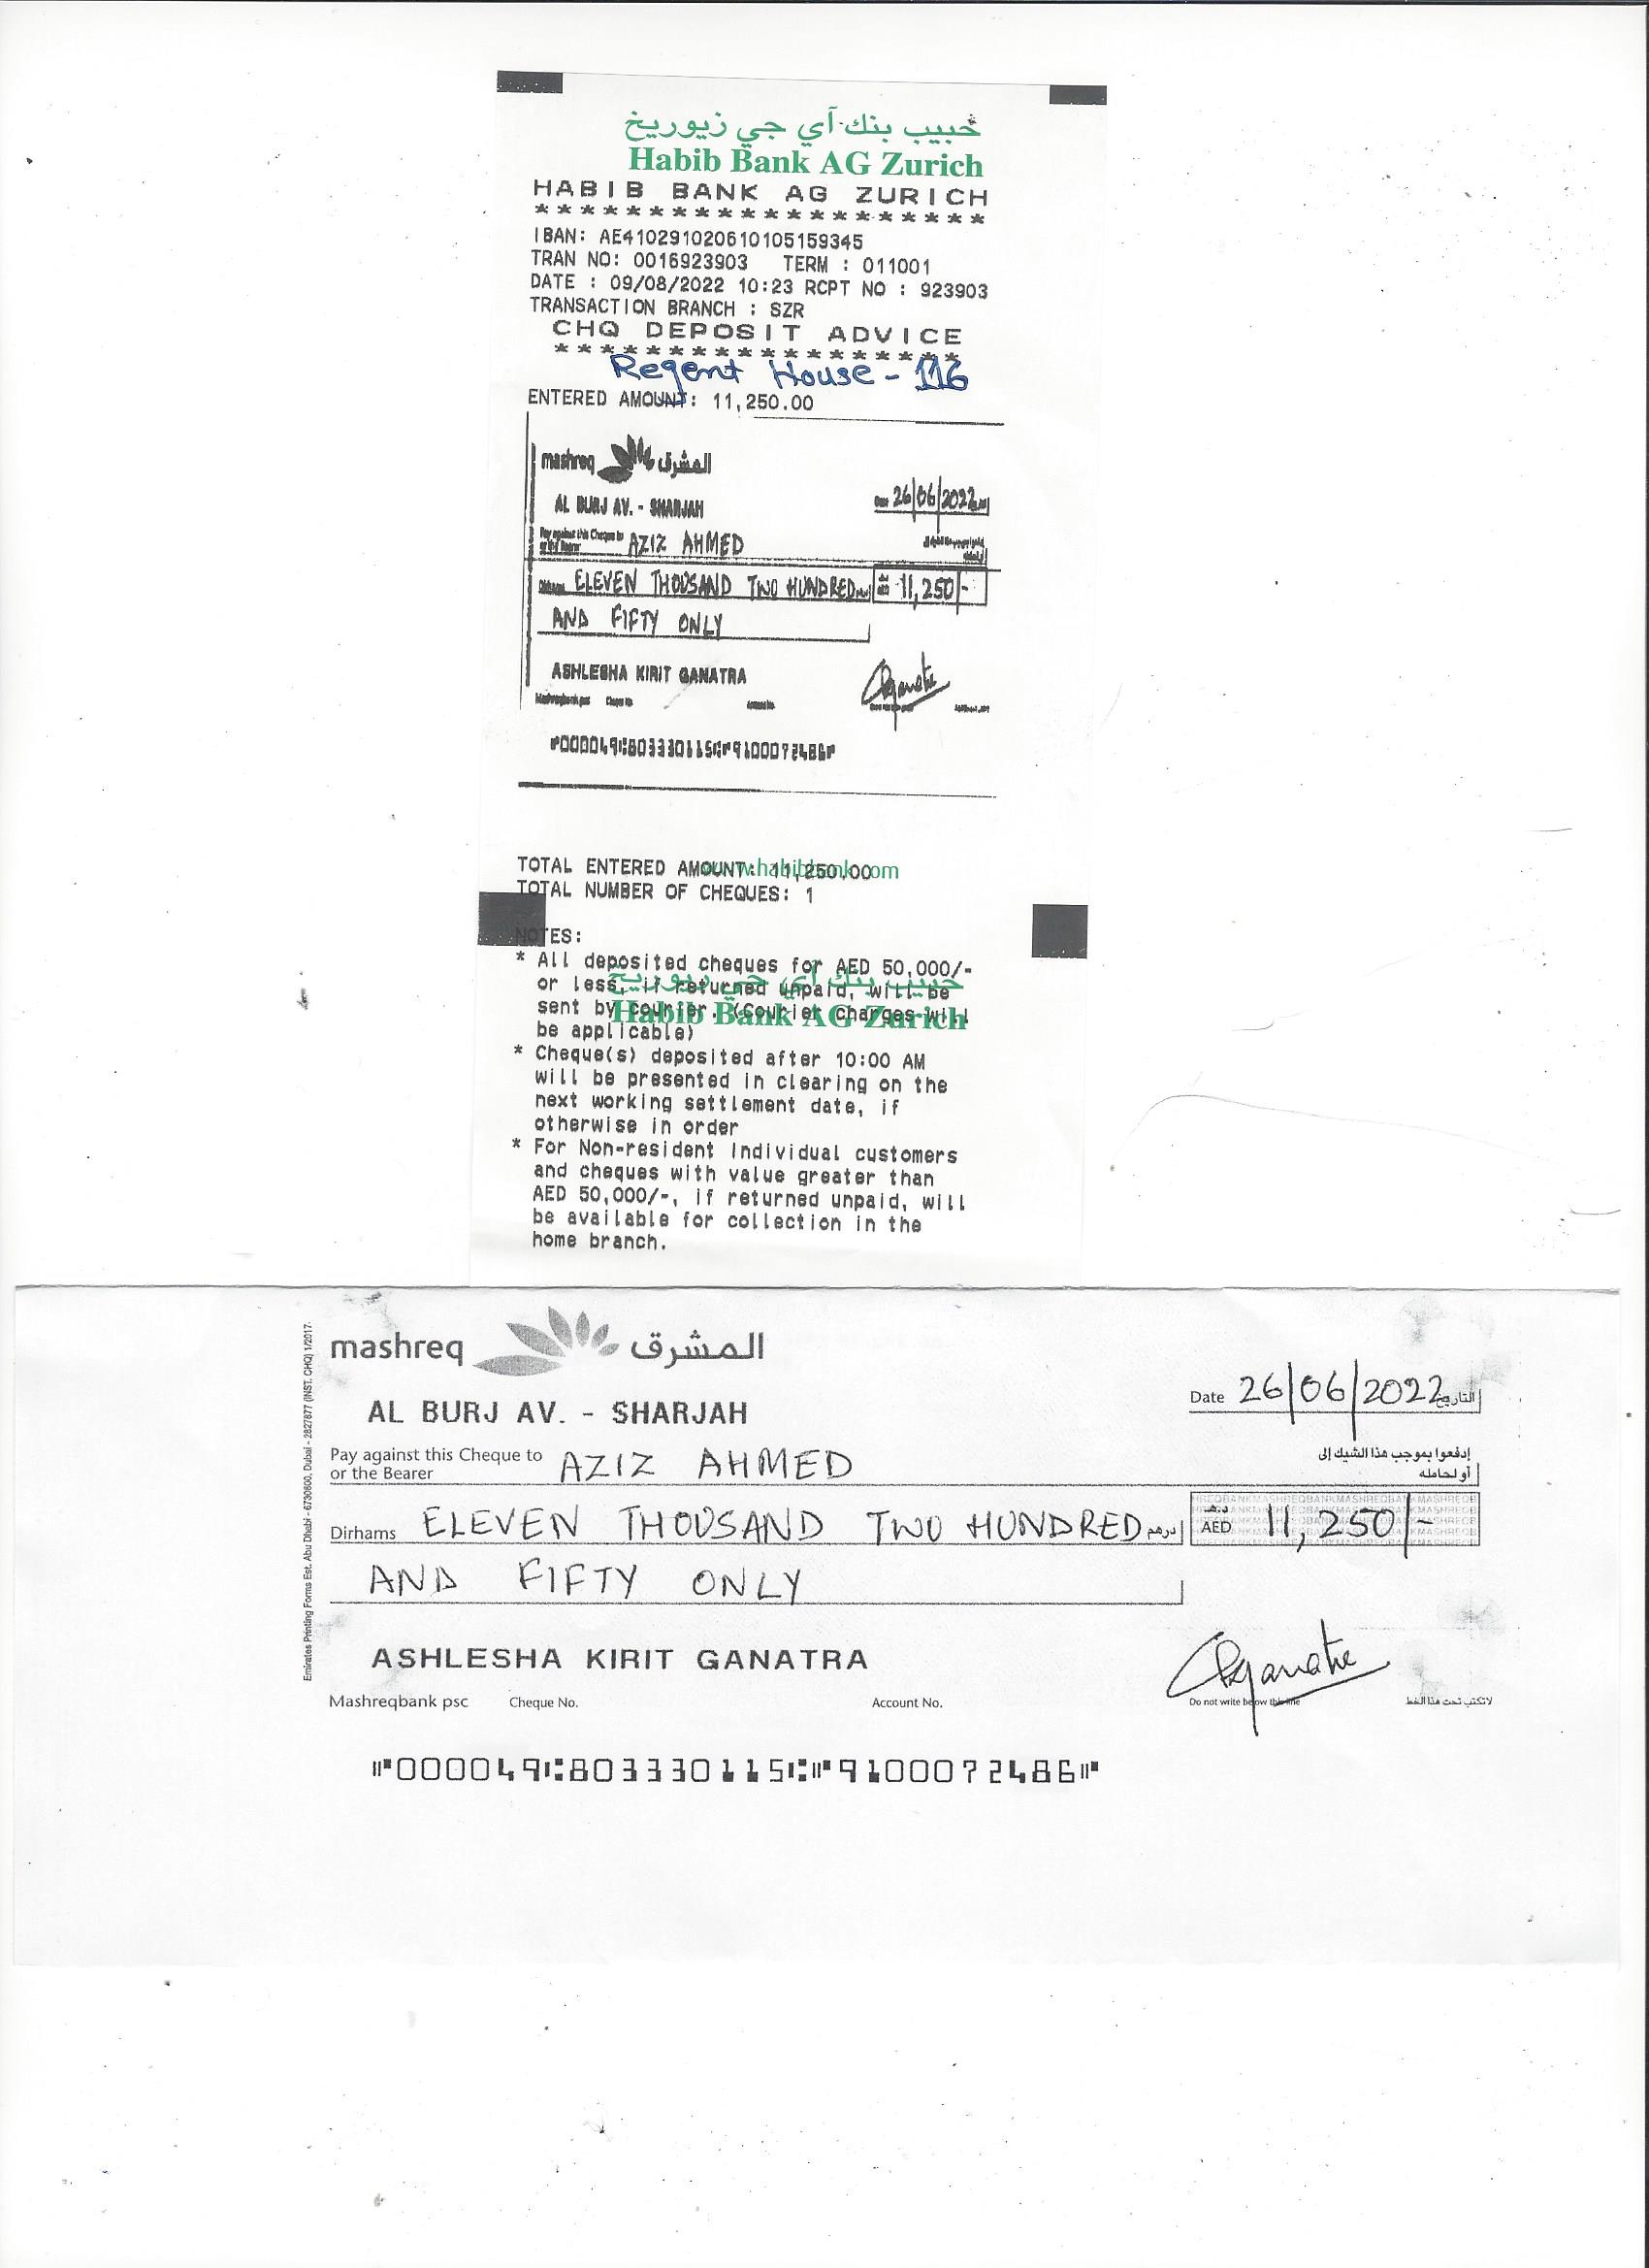 حبيب بنك آي جي زيوريخ
Habib Bank AG Zurich
HABIB BANK AG ZURICH
********************
IBAN: AE410291020610105159345
TRAN NO: 0016923903 TERM : 011001
DATE : 09/08/2022 10:23 RCPT NO : 923903
TRANSACTION BRANCH : SZR
CHQ DEPOSIT ADVICE
******************
Regent House - 116
ENTERED AMOUNT: 11,250.00
mashreq المشرق
AL BURJ AV. - SHARJAH
Date 26/06/2022
Pay against this Cheque to
or the Bearer AZIZ AHMED
Dirhams ELEVEN THOUSAND TWO HUNDRED AED 11,250/-
AND FIFTY ONLY
ASHLESHA KIRIT GANATRA
Mashreqbank psc Cheque No. Account No.
⑈000049⑆803330115⑆⑈9100072486⑈
TOTAL ENTERED AMOUNT: 11,250.00
www.habibbank.com
TOTAL NUMBER OF CHEQUES: 1
NOTES:
* All deposited cheques for AED 50,000/-
or less, if returned unpaid, will be
sent by courier. (Courier charges will
be applicable)
حبيب بنك آي جي زيوريخ
Habib Bank AG Zurich
* Cheque(s) deposited after 10:00 AM
will be presented in clearing on the
next working settlement date, if
otherwise in order
* For Non-resident Individual customers
and cheques with value greater than
AED 50,000/-, if returned unpaid, will
be available for collection in the
home branch.
Emirates Printing Forms Est. Abu Dhabi - 6730600, Dubai - 2827877 (INST. CHQ) 1/2017.
mashreq المشرق
AL BURJ AV. - SHARJAH
Date 26/06/2022 التاريخ
Pay against this Cheque to AZIZ AHMED إدفعوا بموجب هذا الشيك إلى
or the Bearer أو لحامله
Dirhams ELEVEN THOUSAND TWO HUNDRED درهم د.هـ AED 11,250/-
AND FIFTY ONLY
ASHLESHA KIRIT GANATRA
Mashreqbank psc Cheque No. Account No. Do not write below this line لا تكتب تحت هذا الخط
⑈000049⑆803330115⑆⑈9100072486⑈